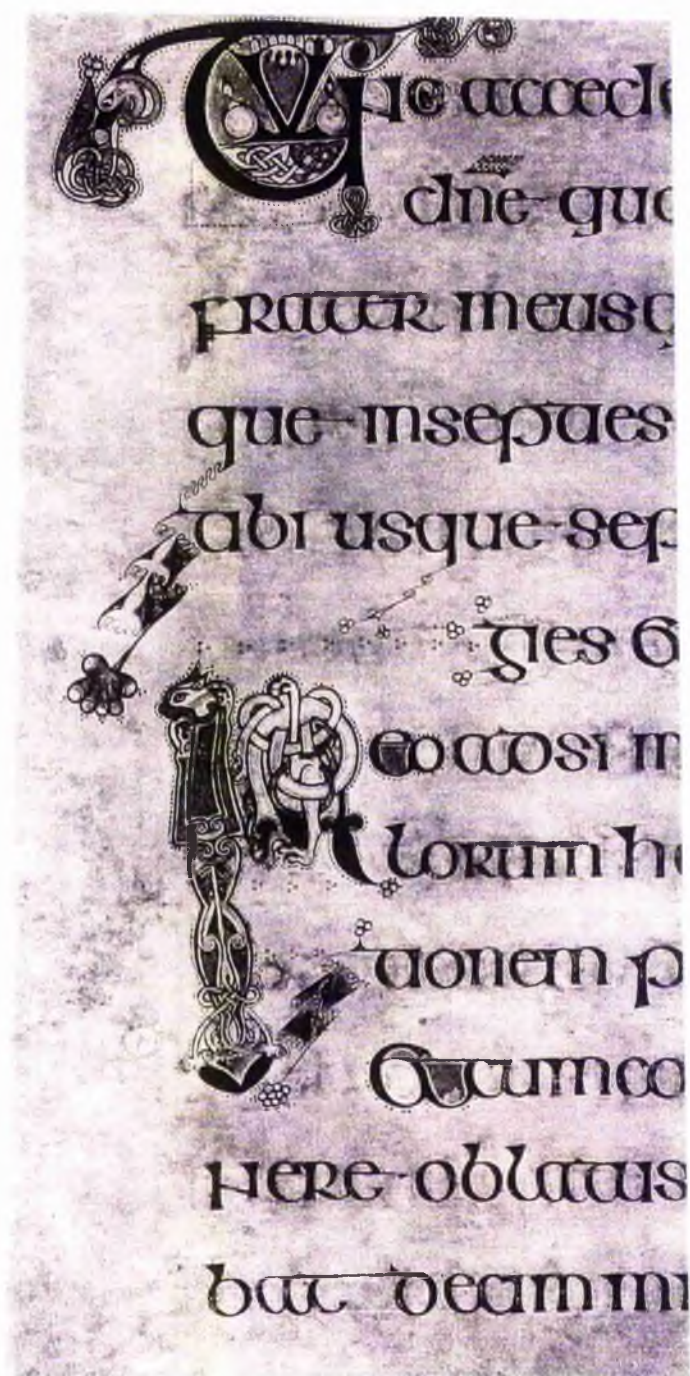 Tunc accede
dne quo
frater meus q
que insepties
tibi usque sep
ties e
Ideo adsi m
lorum ho
tionem p
Et cum co
pere oblatus
bat decim mi